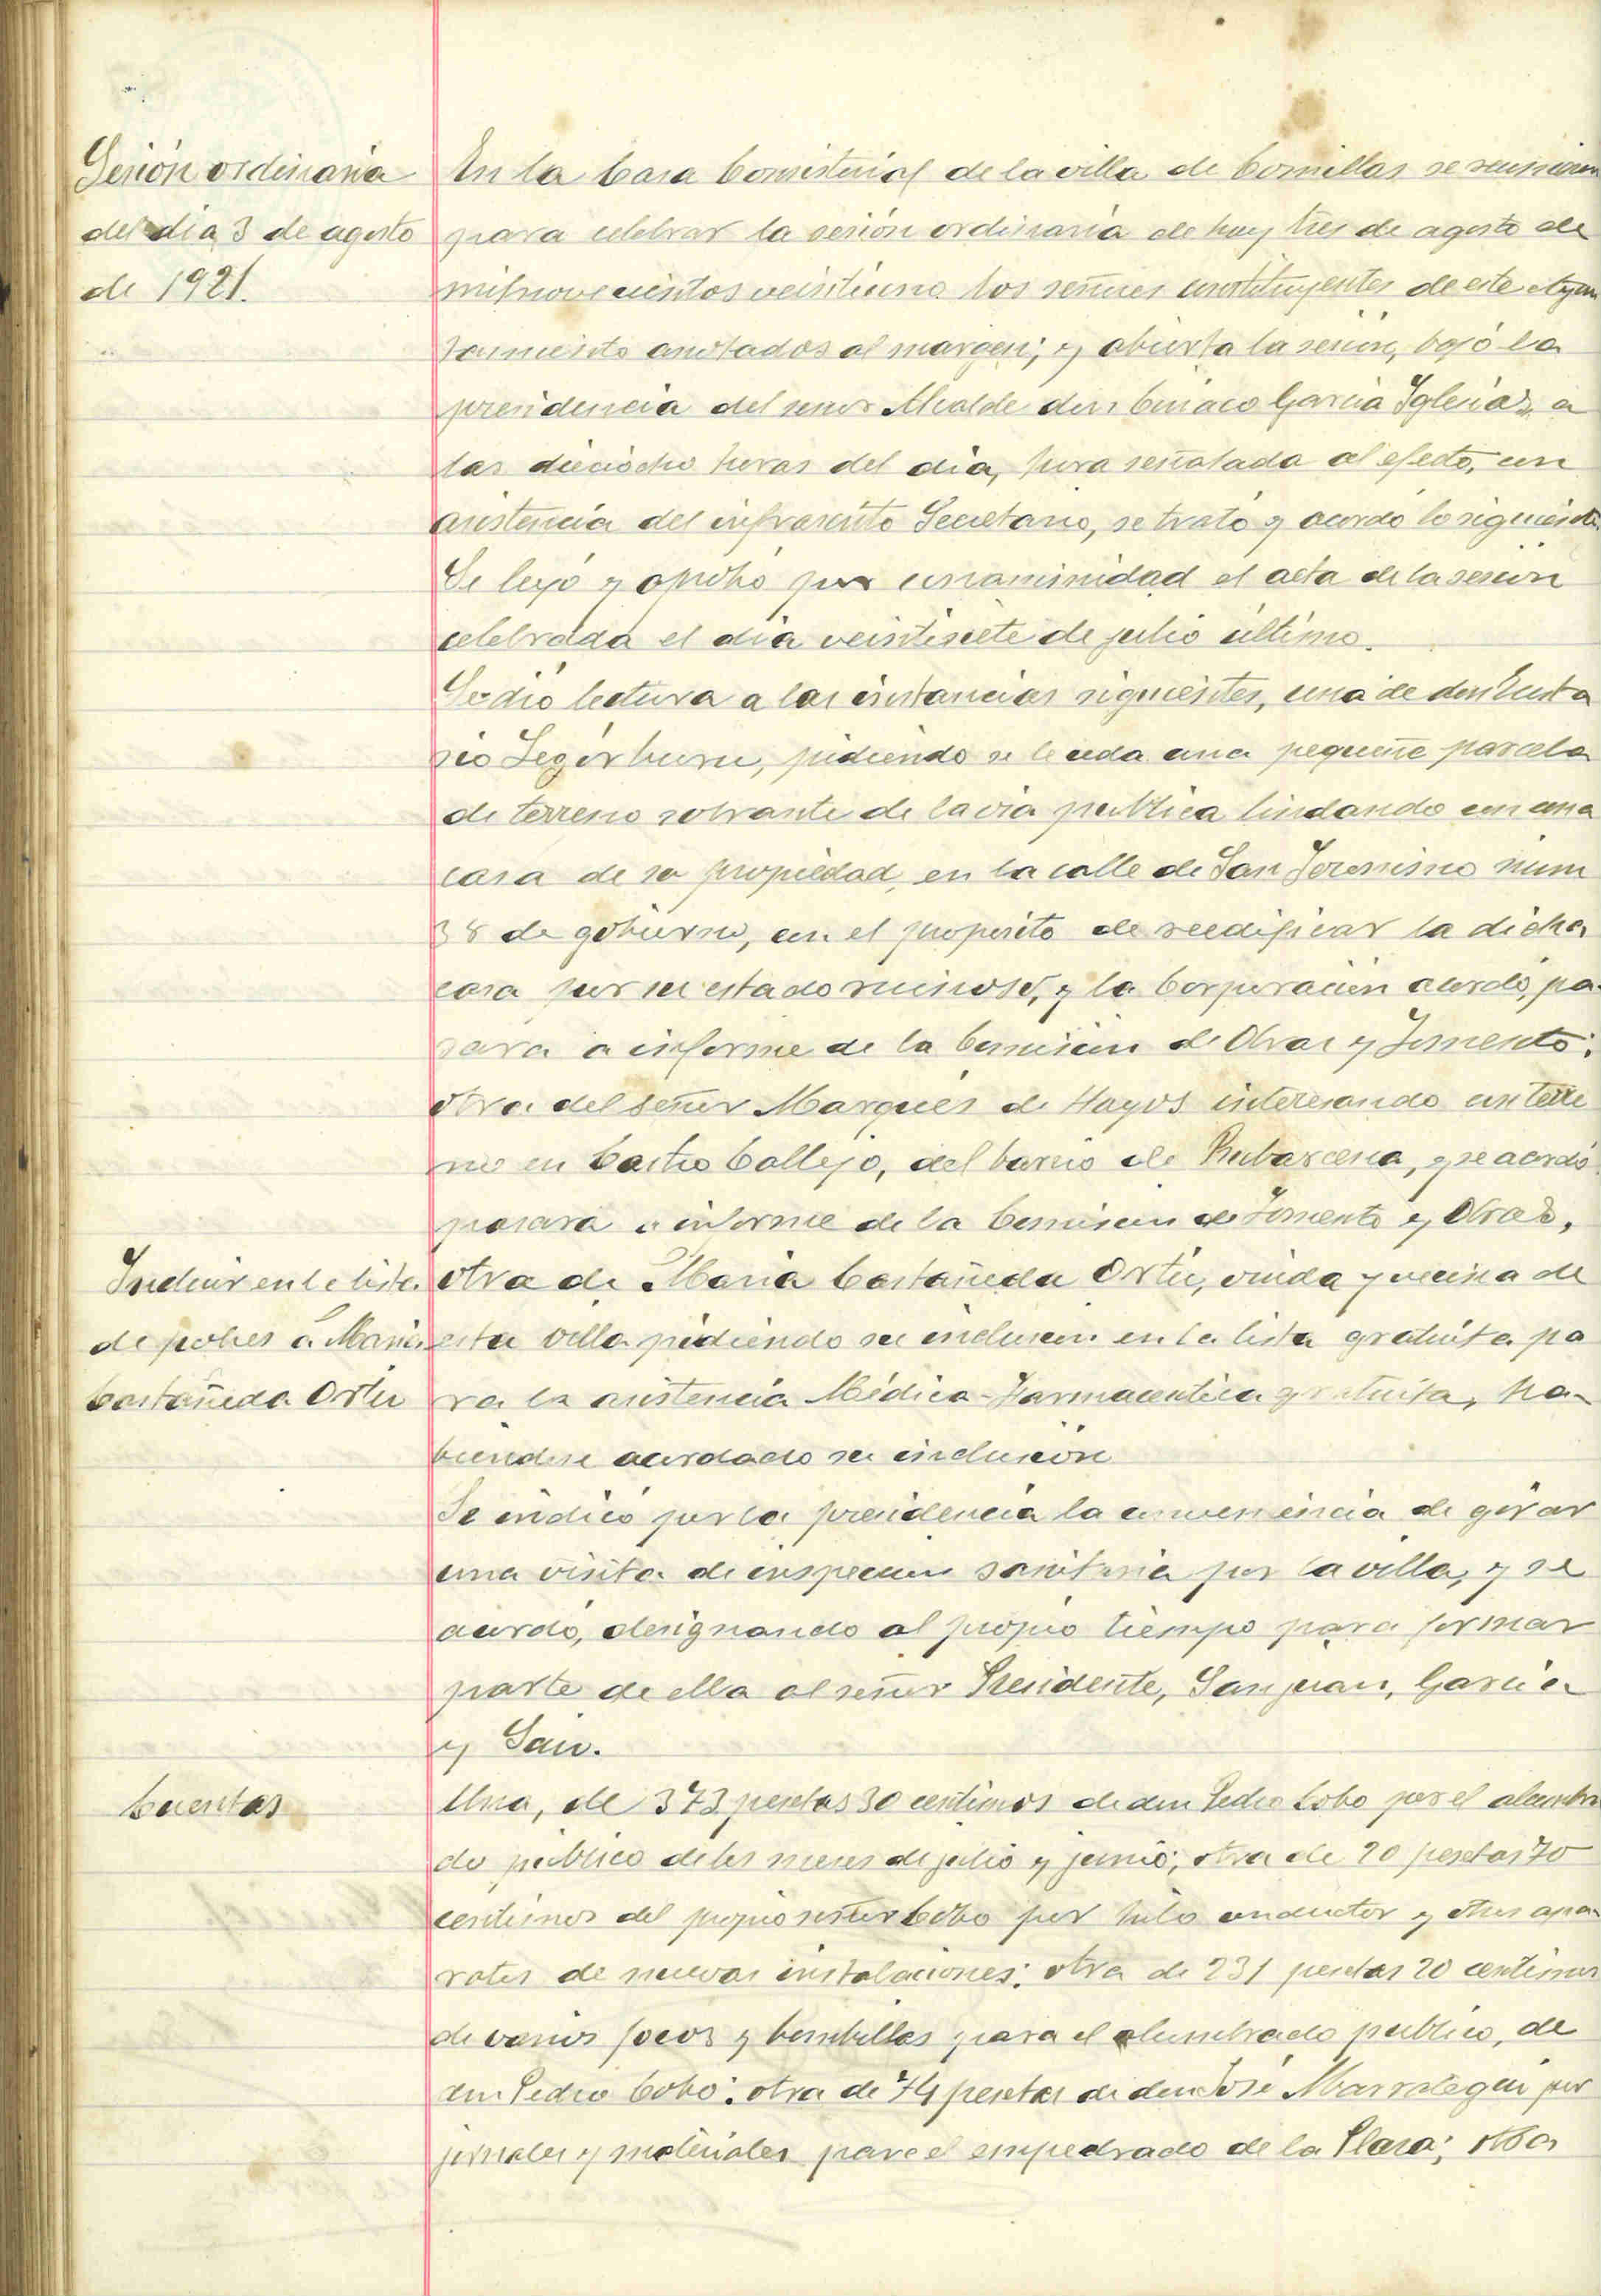 Sesión ordinaria
del dia 3 de agosto
de 1921.
En la Casa Consistorial de la villa de Comillas se reunieron
para celebrar la sesión ordinaria de hoy tres de agosto de
mil novecientos veintiuno los señores constituyentes de este Ayun
tamiento anotados al margen; y abierta la sesion, bajo la
presidencia del señor Alcalde don Ciriaco Garcia Iglesias, a
las dieciocho horas del dia, hora señalada al efecto, con
asistencia del infrascrito Secretario, se trató y acordó lo siguiente
Se leyó y aprobó por unanimidad el acta de la sesion
celebrada el dia veintisiete de julio último.
Se dió lectura a las instancias siguientes, una de don Eusta
sio Legorburu, pidiendo se le ceda una pequeñe parcela
de terreno sobrante de la via publica lindando con una
casa de su propiedad, en la calle de San Jeronimo num
38 de gobierno, con el proposito de reedificar la dicha
casa por su estado ruinoso, y la Corporacion acordó, pa-
sara a informe de la Comision de Obras y Fomento;
otra del señor Marqués de Hoyos interesando un terre
no en Castro Callejo, del barrio de Rubarcena, y se acordó
pasara a informe de la Comision de Fomento y Obras,
Incluir en la lista
de pobres a Maria
Castañeda Ortiz
otra de Maria Castañeda Ortiz, viuda y vecina de
esta villa pidiendo su inclusion en la lista gratuita pa
ra la asistencia Médica-Farmaceutica gratuita, ha-
biendose acordado su inclusión
Se indicó por la presidencia la conveniencia de girar
una visita de inspeccion sanitaria por la villa, y se
acordó, designando al propio tiempo para formar
parte de ella al señor Presidente, Sanjuan, Garcia
y Saiz.
Cuentas
Una, de 373 pesetas 30 centimos de don Pedro Cobo por el alumbra
do publico de los meses de julio y junio; otra de 20 pesetas 70
centimos del propio señor Cobo por hilo conductor y otros apa-
ratos de nuevas instalaciones; otra de 231 pesetas 20 centimos
de varios focos y bombillas para el alumbrado publico, de
don Pedro Cobo; otra de 74 pesetas de don José Marrotegui por
jornales y materiales para el empedrado de la Plaza; otra